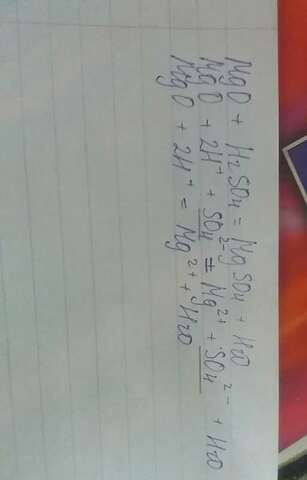 MgO + H₂SO₄ = MgSO₄ + H₂O
MgO + 2H⁺ + SO₄²⁻ = Mg²⁺ + SO₄²⁻ + H₂O
MgO + 2H⁺ = Mg²⁺ + H₂O